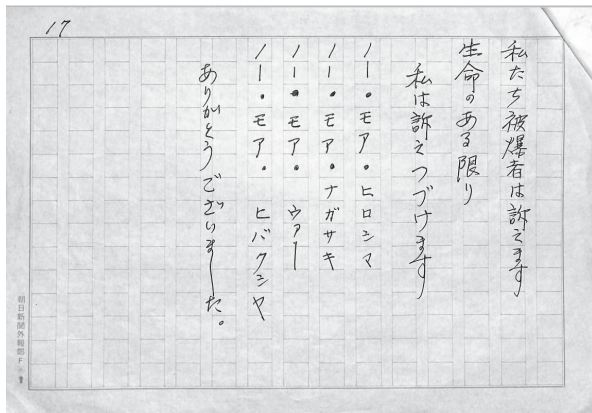 17
私たち被爆者は訴えます
生命のある限り
私は訴えつづけます
ノー・モア・ヒロシマ
ノー・モア・ナガサキ
ノー・モア・ウァー
ノー・モア・ヒバクシャ
ありがとうございました。
朝日新聞外報部F